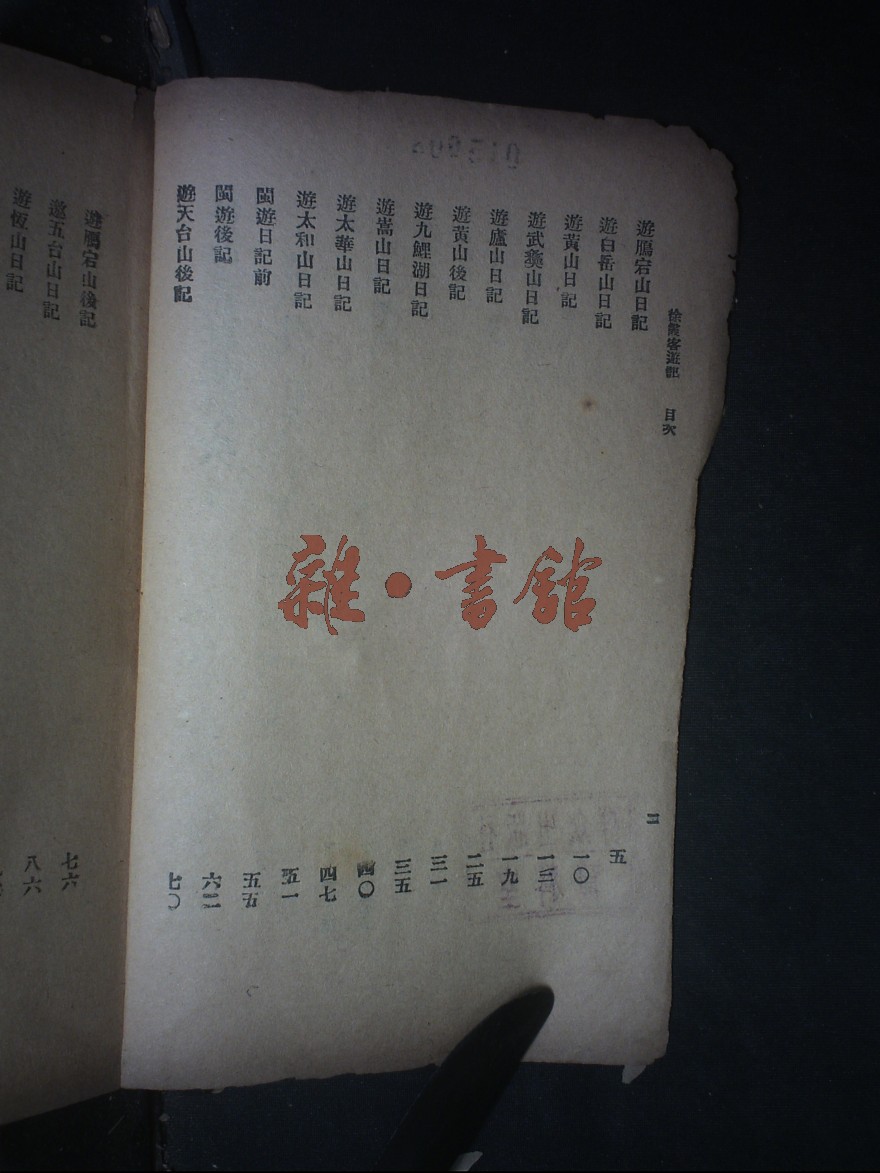 徐霞客遊記 目次 二
遊鴈宕山日記 五
遊白岳山日記 一〇
遊黃山日記 一三
遊武彝山日記 一九
遊廬山日記 二五
遊黃山後記 三一
遊九鯉湖日記 三五
遊嵩山日記 四〇
遊太華山日記 四七
遊太和山日記 五一
閩遊日記前 五五
閩遊後記 六二
遊天台山後記 七〇
遊鴈宕山後記 七六
遊五台山日記 八六
遊恆山日記
雜·書館